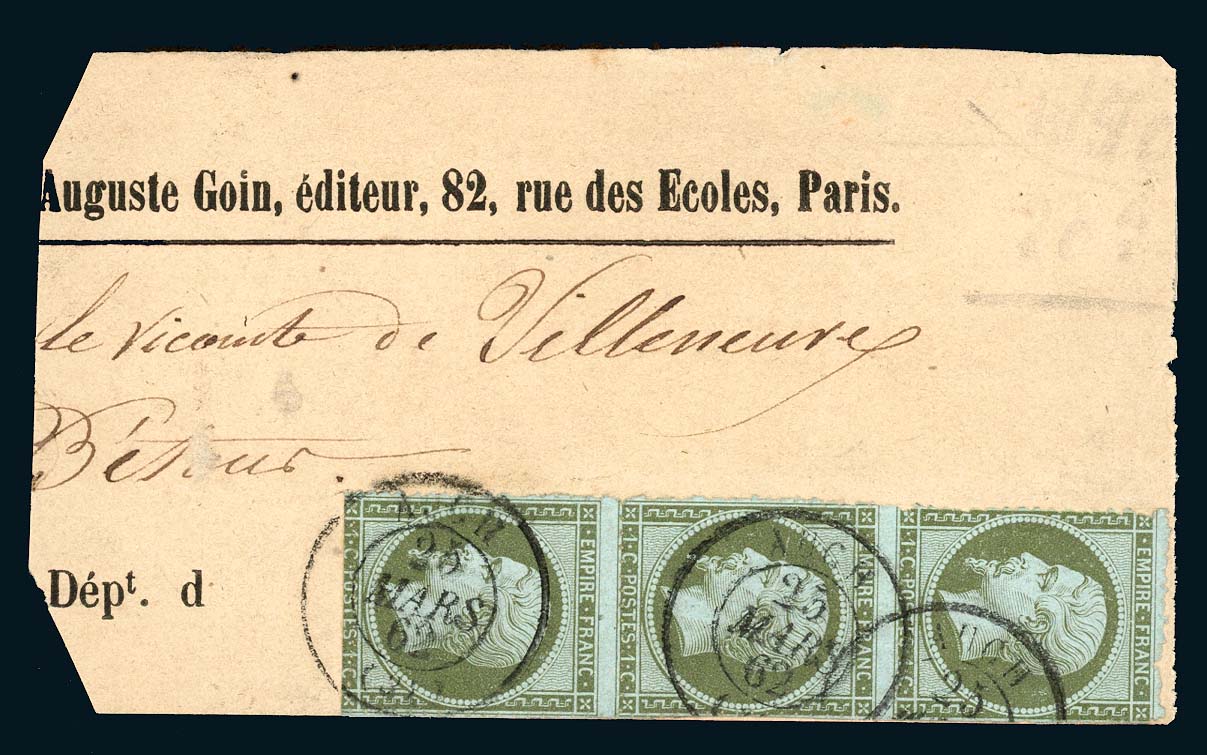 Auguste Goin, éditeur, 82, rue des Ecoles, Paris.
le vicomte de Villeneuve
Dépt. d
EMPIRE·FRANC·
1·C·POSTES·1·C·
EMPIRE·FRANC·
1·C·POSTES·1·C·
EMPIRE·FRANC·
1·C·POSTES·1·C·
25
MARS
25
MARS
62
25